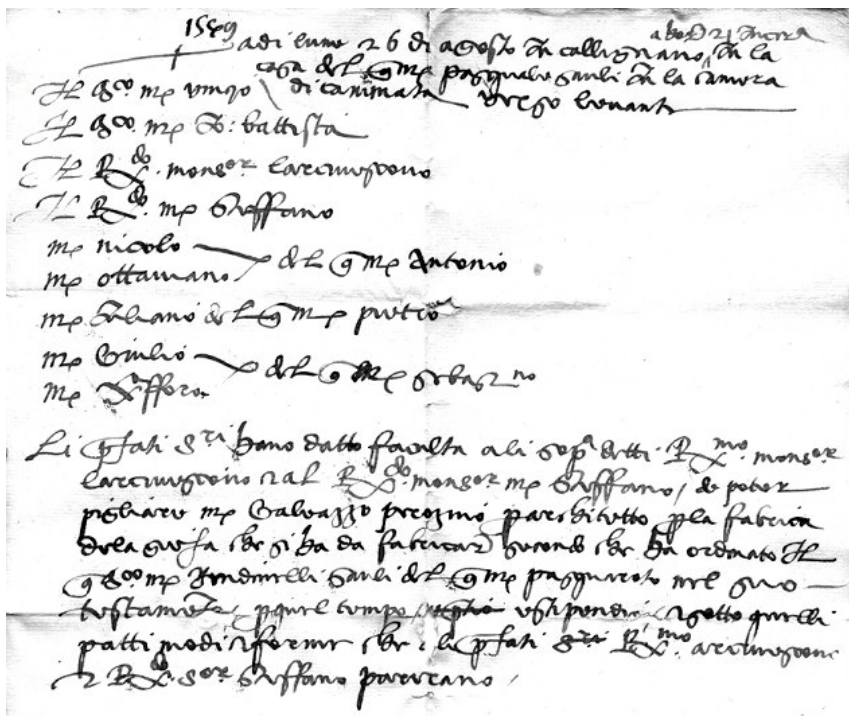 1549
a di lune 26 di agosto In callignano, In la
casa del q m. pasquale sauli In la camera
di caminata verso levante
Il m.
Il m. battista
Il R.do monsor. larcivescovo
Il R.do m. Steffano
m. nicolo
m. ottaviano del q m. Antonio
m. Iuliano del q m. pietro
m. Giulio
m. del q m. sebastno
Li pfati Sri hano datto faculta a li sopa detti Rmo. monsor
larcivescovo 2 al R.do monsor m. Steffano, de poter
pigliare m. Galeazzo perozino p architetto p la fabrica
dela giesa che si ha da fabricar secondo che ha ordinato Il
q m. Bendinelli Sauli del q m. pasquaroto nel suo
testamento, p quel tempo, stipendi, 2 sotto quelli
patti modi 2 forme che li pfati Sri Rmo. arcivescovo
2 R.do Sor Steffano parerano